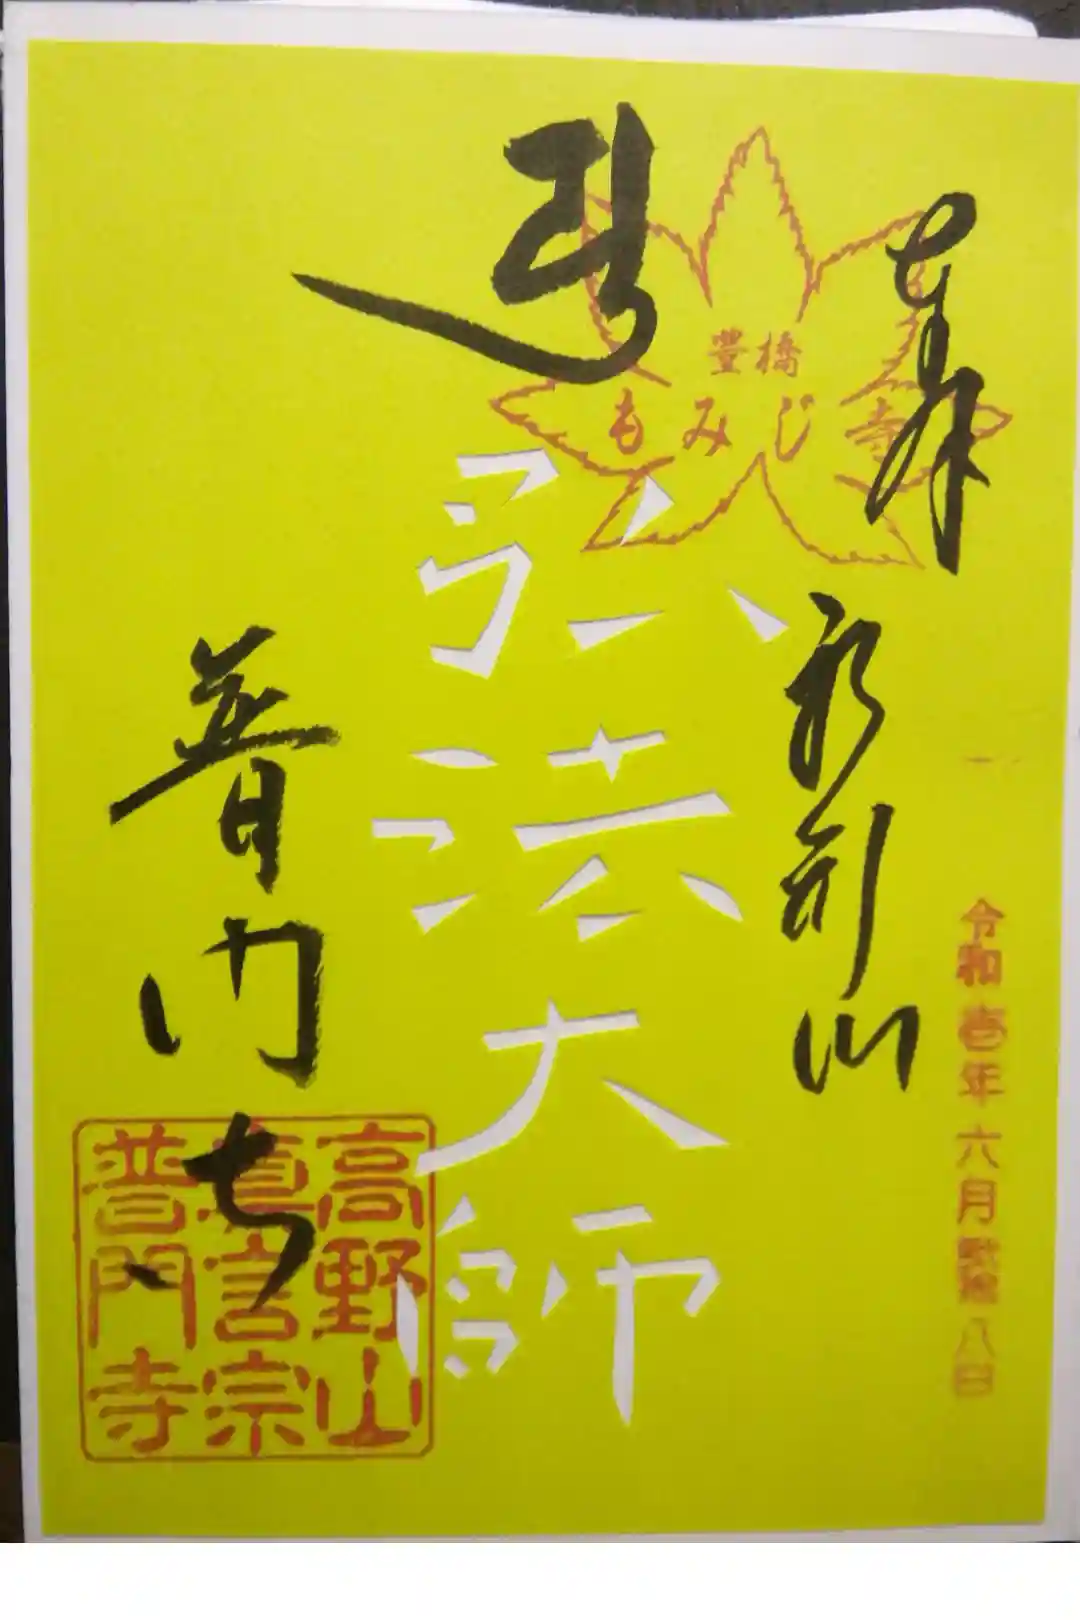 奉拝
船形山
令和壱年六月弐拾八日
豊橋
もみじ寺
弘法大師
普門寺
高野山
真言宗
普門寺